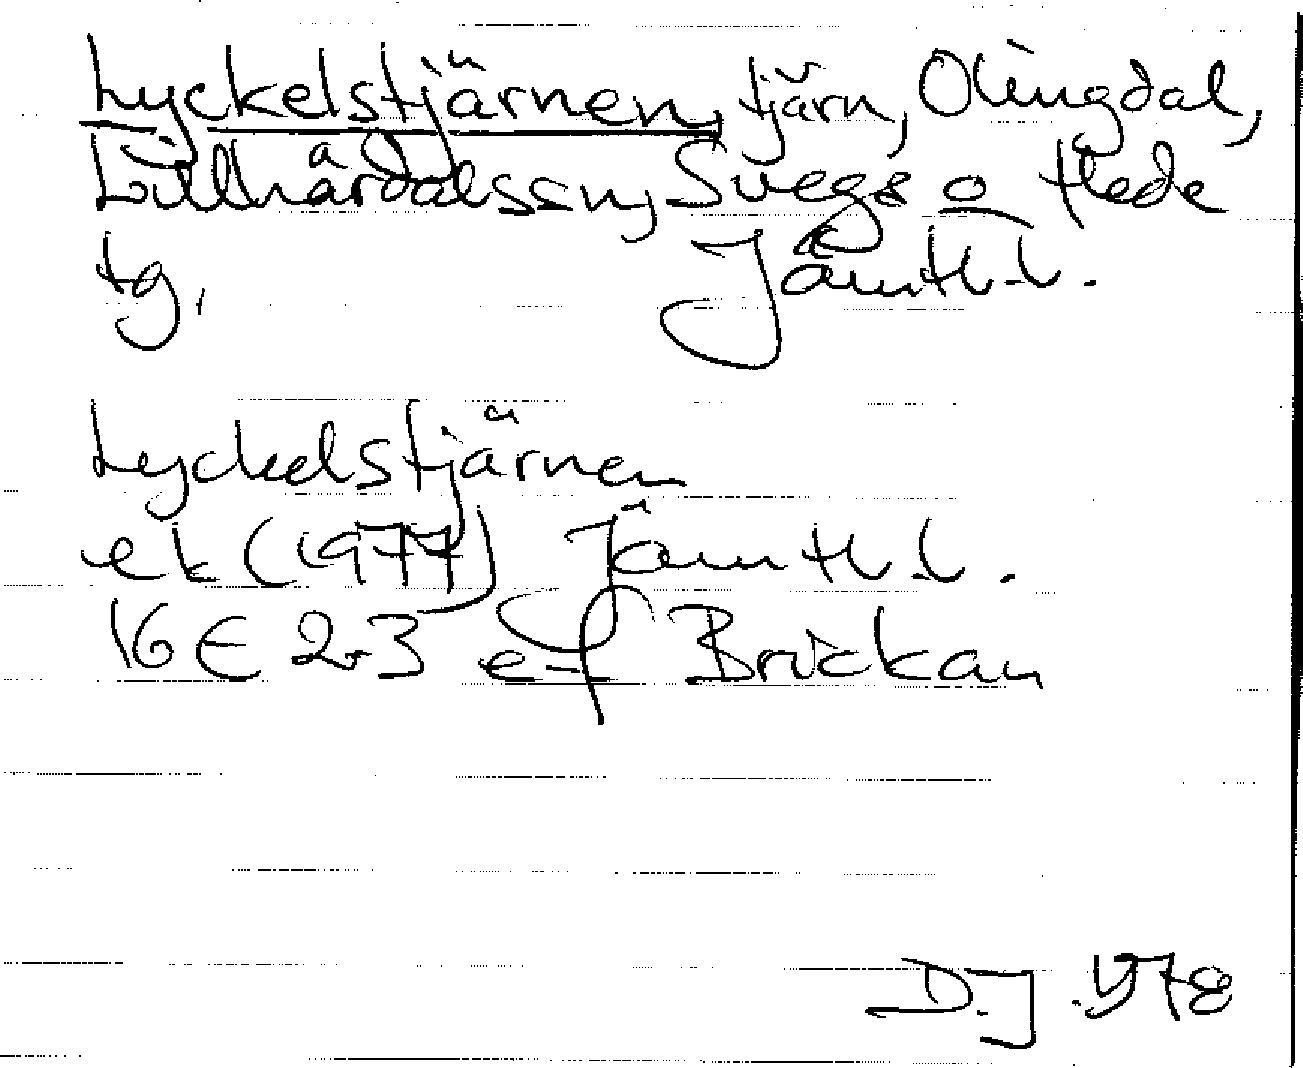 Lyckelstjärnen, tjärn, Olingdal,
Lillhärdalssn, Svegs o Hede
tg. Jämtl.l.
Lyckelstjärnen
ek (1977) Jämtl.l.
16E 2-3 e-f Brickan
D.J 1978